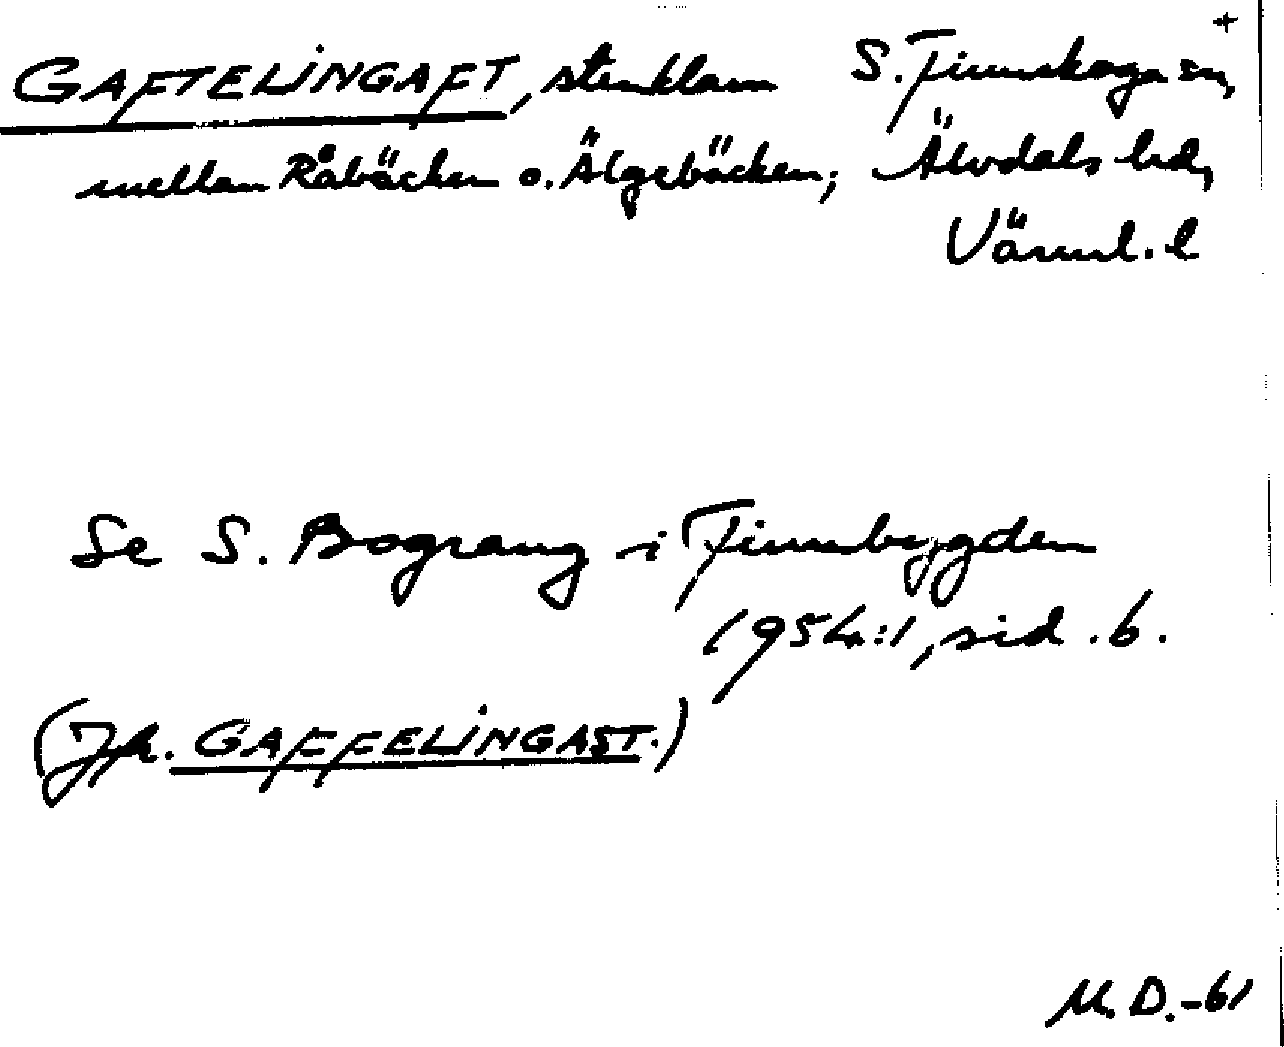 +
GAFTELINGAFT, stenklam S. Finnskogasn,
mellan Råbäcken o. Älgebäcken; Älvdals hd,
Värml. l
Se S. Bograng i Finnbygden
1954:1, sid. 6.
(Jfr. GAFFELINGAST.)
M. D. -61